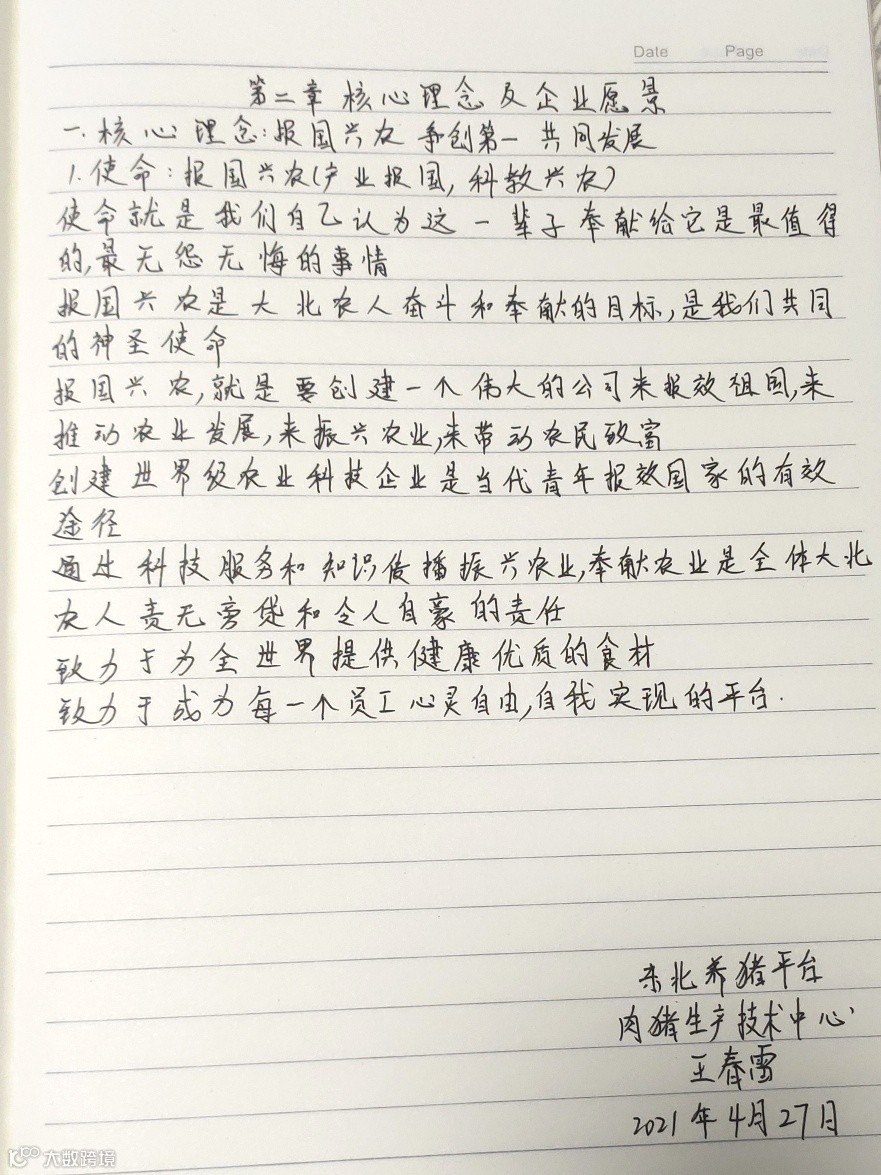 Date Page
第二章 核心理念及企业愿景
一.核心理念:报国兴农 争创第一 共同发展
1.使命:报国兴农(产业报国,科教兴农)
使命就是我们自己认为这一辈子奉献给它是最值得
的,最无怨无悔的事情
报国兴农是大北农人奋斗和奉献的目标,是我们共同
的神圣使命
报国兴农,就是要创建一个伟大的公司来报效祖国,来
推动农业发展,来振兴农业,来带动农民致富
创建世界级农业科技企业是当代青年报效国家的有效
途径
通过科技服务和知识传播振兴农业,奉献农业是全体大北
农人责无旁贷和令人自豪的责任
致力于为全世界提供健康优质的食材
致力于成为每一个员工心灵自由,自我实现的平台.
东北养猪平台
肉猪生产技术中心
王春雷
2021年4月27日
大数跨境